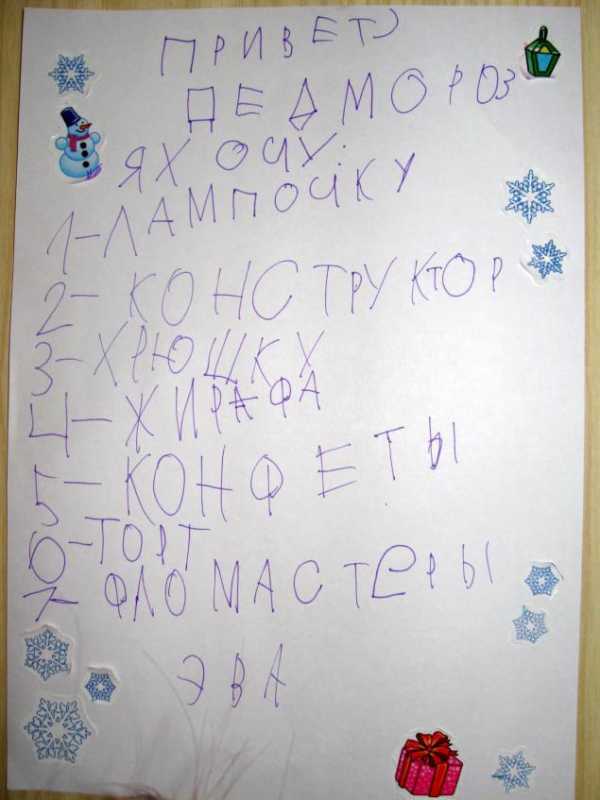 ПРИВЕТ
ДЕДМОРОЗ
ЯХ ОЧУ:
1-ЛАМПОЧКУ
2-КОНСТРУКТОР
3-ХРЮШКХ
4-ЖИРАФА
5-КОНФЕТЫ
6-ТОРТ
7-ФЛОМАСТЕРЫ
ЭВА